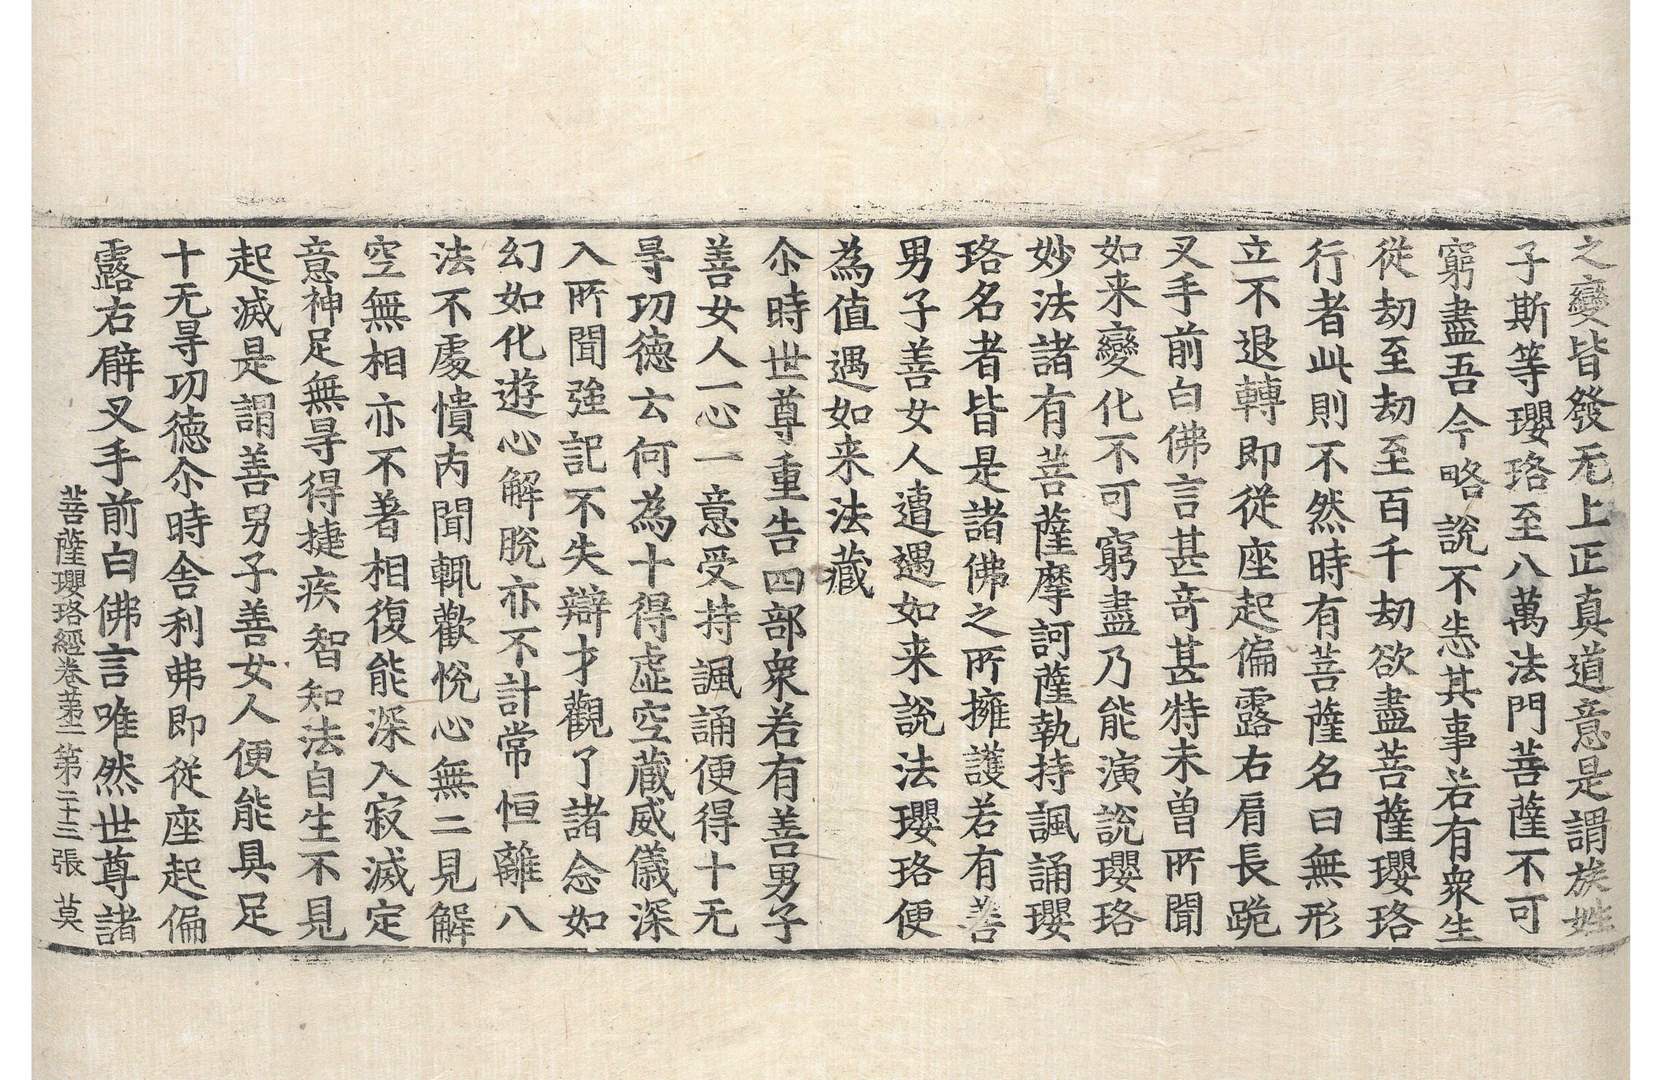 之變皆發无上正真道意是謂族姓
子斯等瓔珞至八萬法門菩薩不可
窮盡吾今略說不悉其事若有衆生
從劫至劫至百千劫欲盡菩薩瓔珞
行者此則不然時有菩薩名曰無形
立不退轉即從座起偏露右肩長跪
叉手前白佛言甚奇甚特未曾所聞
如来變化不可窮盡乃能演說瓔珞
妙法諸有菩薩摩訶薩執持諷誦瓔
珞名者皆是諸佛之所擁護若有善
男子善女人遭遇如来說法瓔珞便
為值遇如来法藏
尒時世尊重告四部衆若有善男子
善女人一心一意受持諷誦便得十无
㝵功德云何為十得虛空藏威儀深
入所聞強記不失辯才觀了諸念如
幻如化遊心解脫亦不計常恒離八
法不處憒內聞輒歡悅心無二見解
空無相亦不著相復能深入寂滅定
意神足無㝵得捷疾智知法自生不見
起滅是謂善男子善女人便能具足
十无㝵功德尒時舍利弗即從座起偏
露右臂叉手前白佛言唯然世尊諸
菩薩瓔珞經卷第二 第二十三張 莫